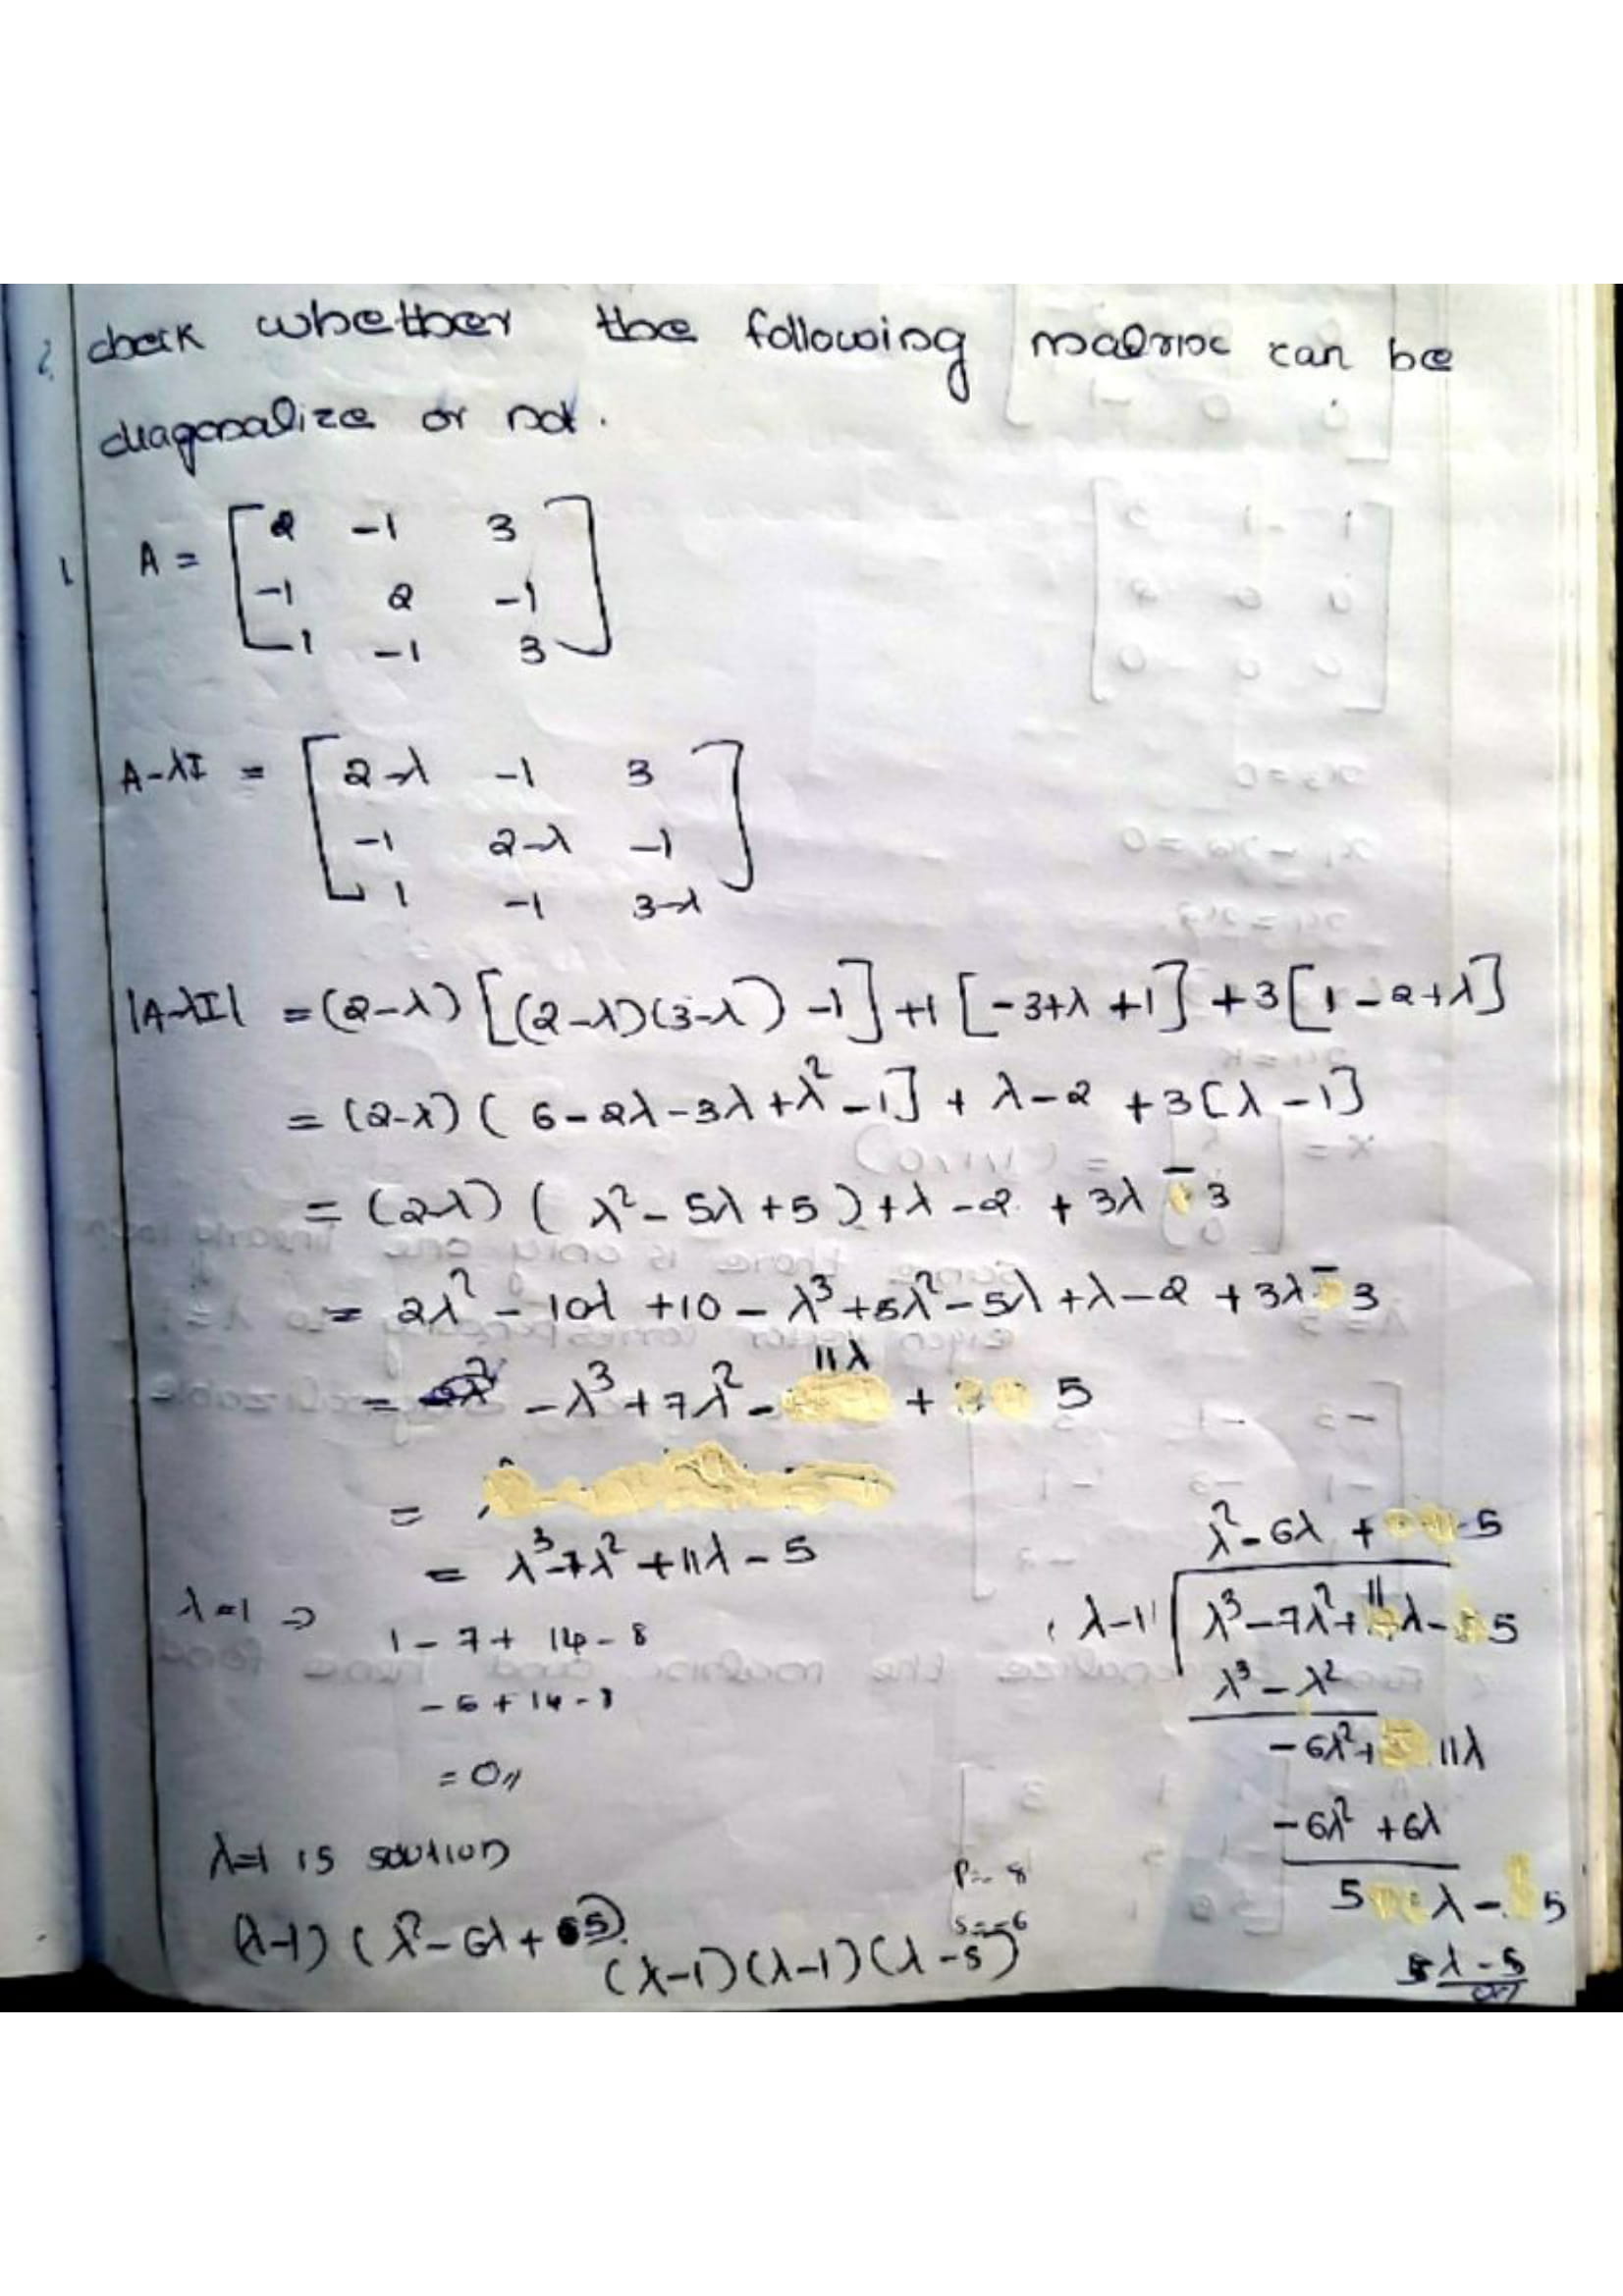 2. check whether the following matrix can be
diagonalize or not.
1. A = [ 2 -1 3
-1 2 -1
1 -1 3 ]
A-λI = [ 2-λ -1 3
-1 2-λ -1
1 -1 3-λ ]
|A-λI| = (2-λ) [(2-λ)(3-λ) -1] +1 [-3+λ +1] +3[1-2+λ]
= (2-λ) ( 6-2λ-3λ+λ² -1] + λ-2 +3[λ-1]
= (2-λ) ( λ²-5λ+5 ) +λ-2 + 3λ - 3
= 2λ² - 10λ +10 - λ³+5λ²-5λ+λ-2 +3λ - 3
= -λ³+7λ²- 11λ + 5
=
= λ³-7λ²+11λ-5
λ=1 ⇒ 1-7+ 14-8
-6+14-8
= 0//
λ=1 is solution
(λ-1) ( λ²-6λ+ 5)
(λ-1)(λ-1)(λ-5)
P= 8
S=-6
λ²-6λ + 5
λ-1 ) λ³-7λ²+ 11λ- 5
λ³-λ²
-6λ²+ 11λ
-6λ² +6λ
5 λ - 5
5λ-5
0//